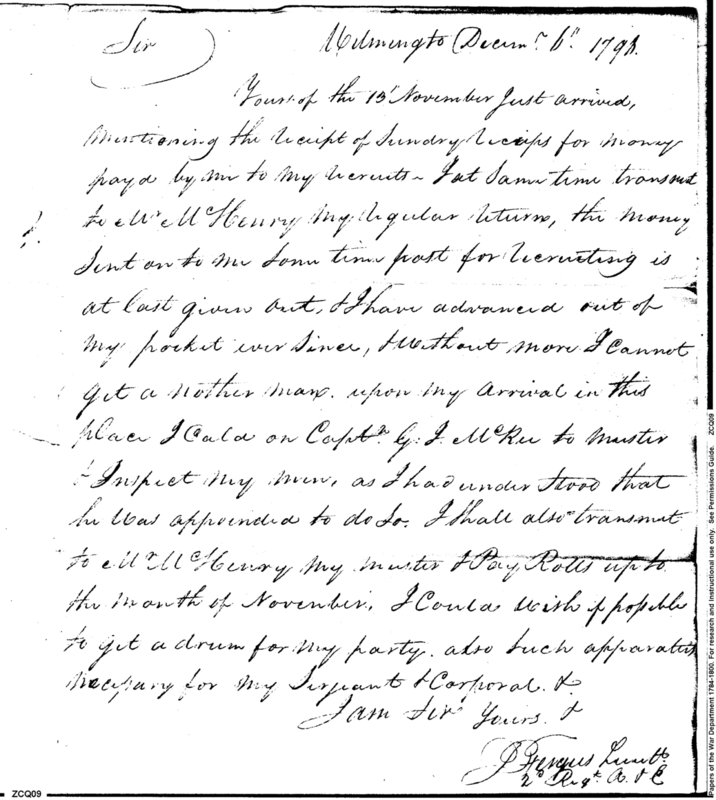 Sir Wilmington Decemr. 6th. 1798.
Yours of the 13t November Just arrived,
Mentioning the receipt of Sundry receips for money
payd by me to My recruits - I at Same time transmit
to Mr. McHenry My regular return, the money
Sent on to me Some time past for recruiting is
at last given out, & I have advanced out of
My pocket ever Since, & Without more I Cannot
get a nother man. upon my arrival in this
place I Cald on Captn. G. J. McRee to muster
& Inspect my men, as I had under Stood that
he Was appoended to do So. I Shall also transmit
to Mr. McHenry My muster & Pay Rolls up to
the Month of November. I Could Wish if possible
to get a drum for My party. also Such apparattis
necessary for my Sergeant & Corporal. &.
I am Sir Yours. &
J Fergus Lieutt.
2d Regt. A. & E
ZCQ09
Papers of the War Department 1784-1800. For research and instructional use only. See Permissions Guide. ZCQ09